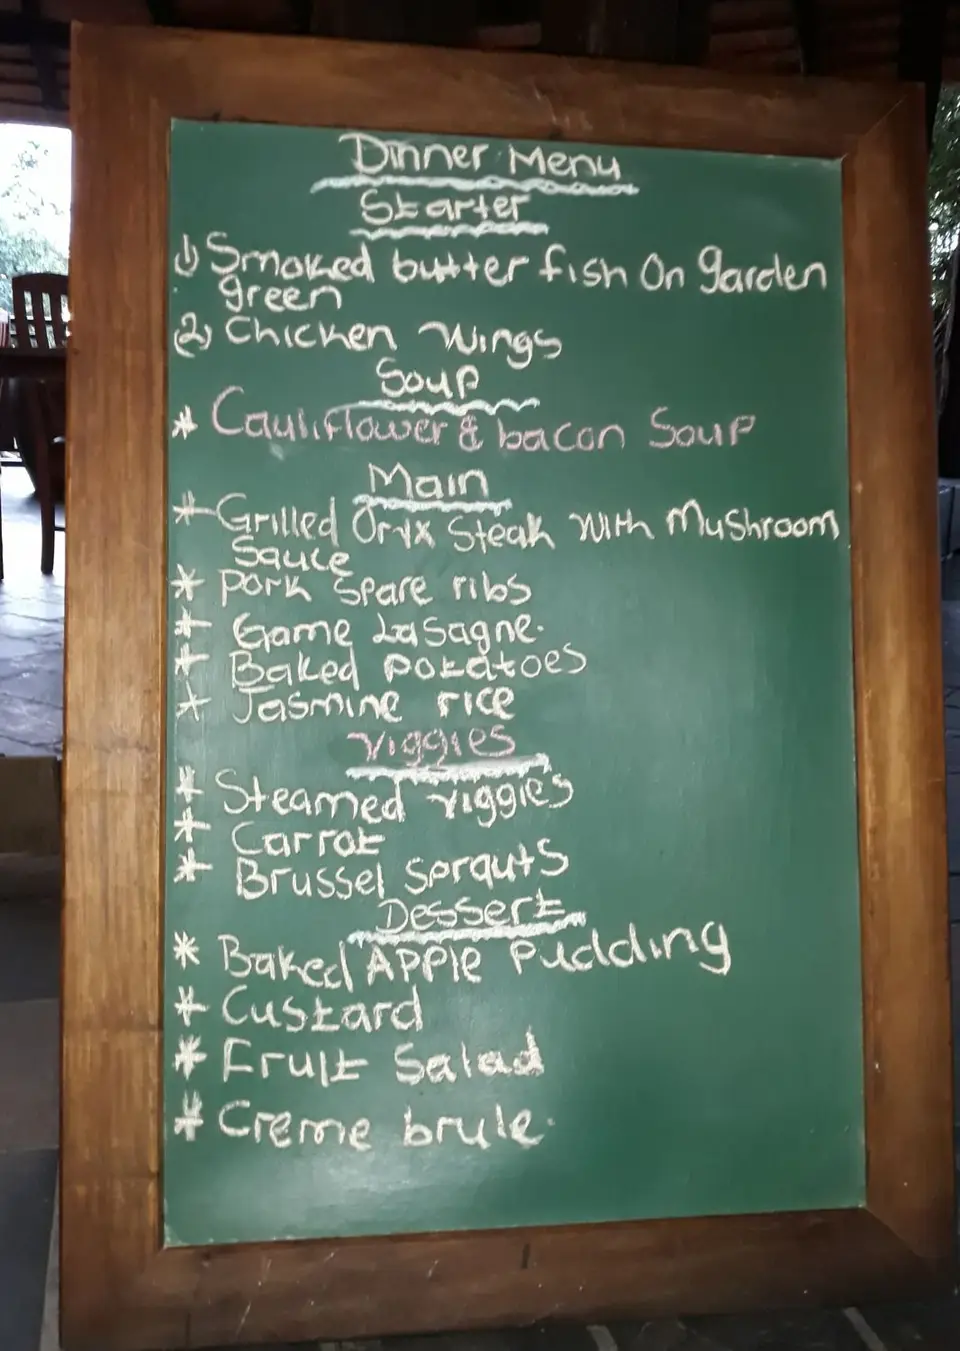 Dinner Menu
Starter
1) Smoked butter fish On garden
green
(2) Chicken Wings
Soup
* Cauliflower & bacon Soup
Main
* Grilled Oryx Steak With Mushroom
Sauce
* Pork Spare ribs
* Game Lasagne.
* Baked potatoes
* Jasmine rice
Viggies
* Steamed viggies
* Carrot
* Brussel Sprauts
Dessert
* Baked Apple Pudding
* Custard
* Fruit Salad
* Creme brule.